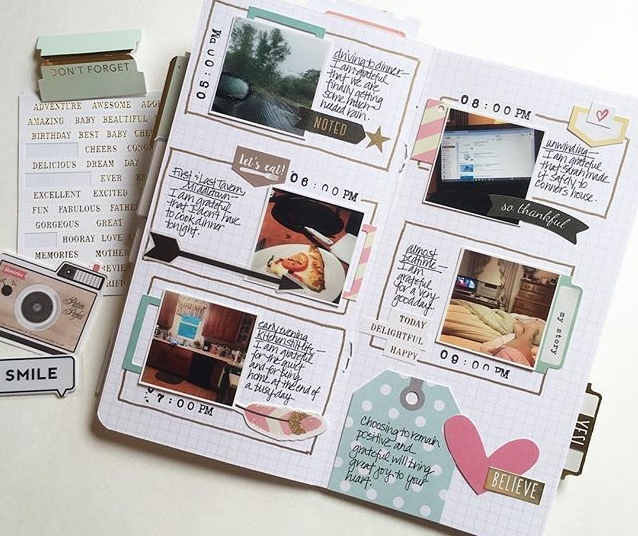 DON'T FORGET
ADVENTURE AWESOME
AMAZING BABY BEAUTIFUL
BIRTHDAY BEST BABY
CHEERS
DELICIOUS DREAM DAY
EVER
EXCELLENT EXCITED
FUN FABULOUS
GORGEOUS GREAT
HOORAY LOVE
MEMORIES
SMILE
05:00 PM
driving to dinner-
I am grateful
that we are
finally getting
some much
needed rain.
NOTED
let's eat!
06:00 PM
First & Last Tavern,
Middletown-
I am grateful
that I don't have
to cook dinner
tonight.
07:00 PM
early evening
kitchen still life-
I am grateful
for the quiet
and for being
home at the end of
a busy day.
08:00 PM
unwinding-
I am grateful
that Sarah made
it safely to
Connors house.
so thankful
almost
bedtime-
I am
grateful
for a very
good day.
TODAY
DELIGHTFUL
HAPPY
09:00 PM
my story
Choosing to remain
positive and
grateful will bring
great joy to your
heart.
YES!
BELIEVE